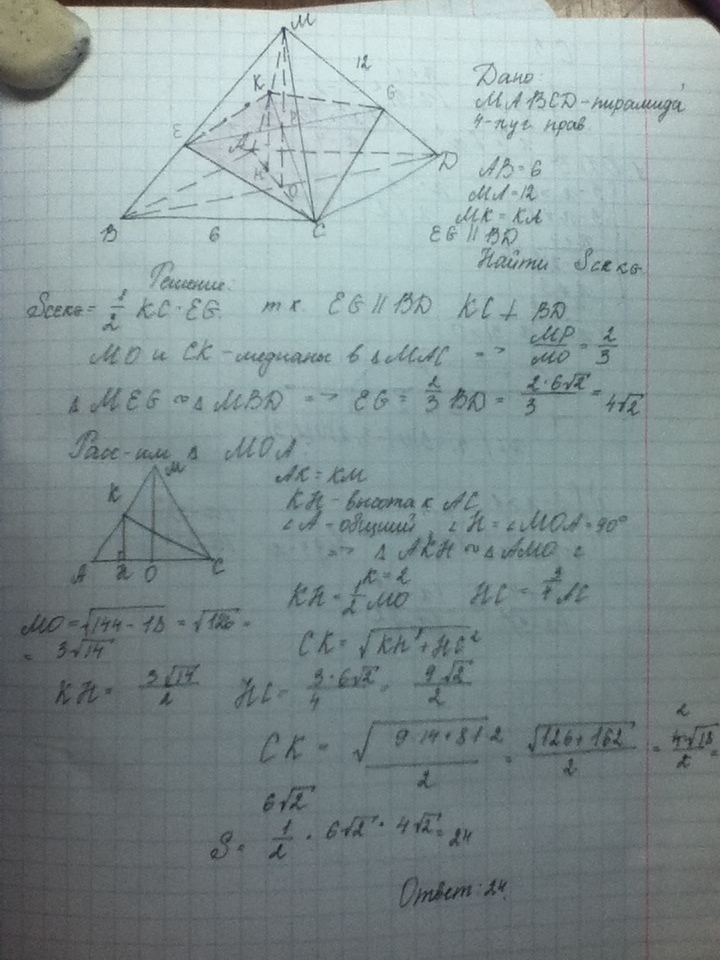 M
12
K
G
E
P
A
D
H
O
B
6
C
Дано:
MABCD - пирамида
4-х уг. прав.
AB = 6
MA = 12
MK = KA
EG || BD
Найти Sсекч
Решение:
= 1/2 KC · EG. т.к. EG || BD KC ⊥ BD
MO и CK - медианы в △ MAC => MP/MO = 2/3
△ MEG ~ △ MBD => EG = 2/3 BD = 2·6√2/3 = 4√2
Расс-им △ MOA.
M
K
A
H
O
C
AK = KM
KH - высота к AC
∠A - общий ∠H = ∠MOA = 90°
=> △ AKH ~ △ AMO с
k = 2
KH = 1/2 MO HC = 3/4 AC
MO = √144-18 = √126 =
= 3√14
CK = √KH² + HC²
KH = 3√14/2 HC = 3·6√2/4 = 9√2/2
CK = √9·14+81·2/2 = √126+162/2 = =
6√2
S = 1/2 · 6√2 · 4√2 = 24
Ответ: 24.